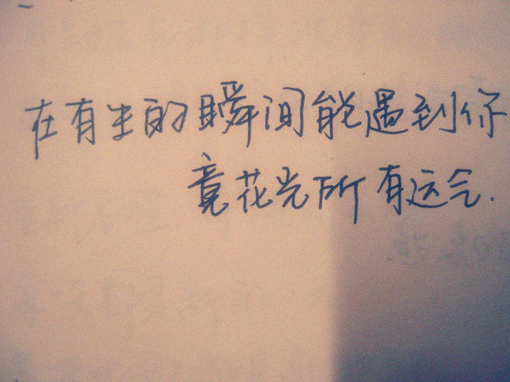 在有生的瞬间能遇到你
竟花光所有运气.